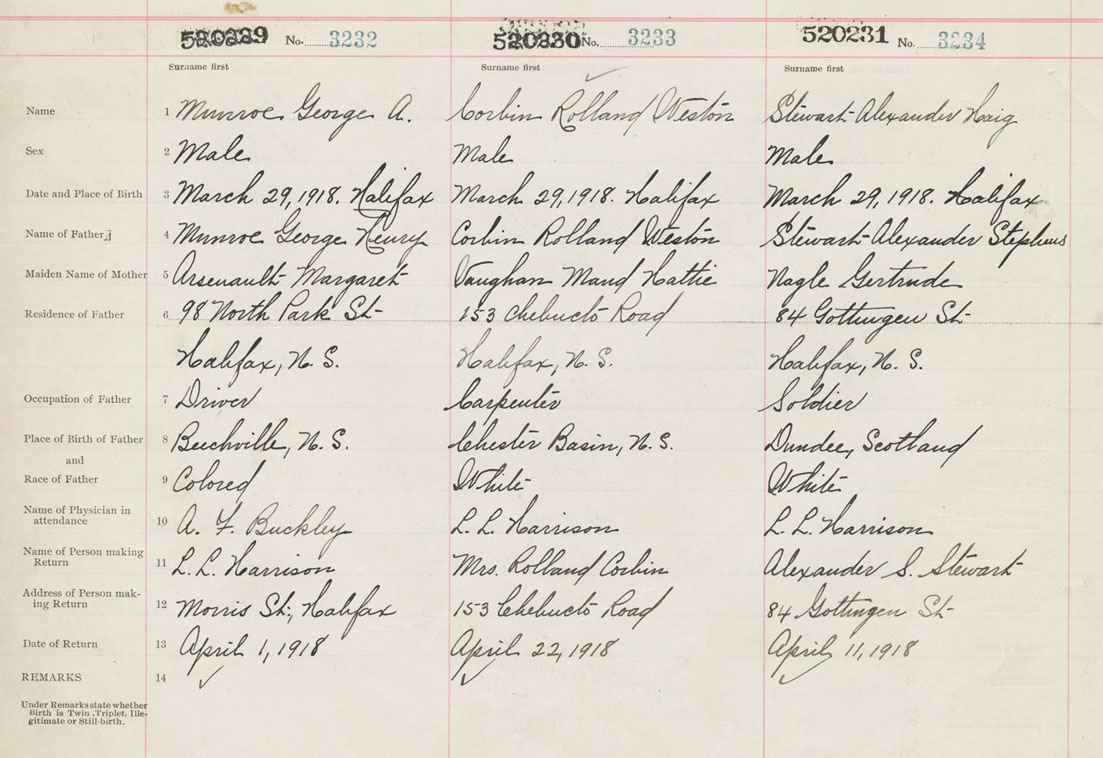 520229 No. 3232 520230 No. 3233 520231 No. 3234
Surname first Surname first Surname first
Name 1 Munroe George A. Corbin Rolland Weston Stewart Alexander Haig
Sex 2 Male Male Male
Date and Place of Birth 3 March 29, 1918. Halifax March 29, 1918. Halifax March 29, 1918. Halifax
Name of Father 4 Munroe George Henry Corbin Rolland Weston Stewart Alexander Stephens
Maiden Name of Mother 5 Arsenault Margaret Vaughan Maud Hattie Nagle Gertrude
Residence of Father 6 98 North Park St 153 Chebucto Road 84 Gottingen St
Halifax, N. S. Halifax, N. S. Halifax, N. S.
Occupation of Father 7 Driver Carpenter Soldier
Place of Birth of Father 8 Beechville, N. S. Chester Basin, N. S. Dundee, Scotland
and
Race of Father 9 Colored White White
Name of Physician in
attendance 10 A. F. Buckley L. L. Harrison L. L. Harrison
Name of Person making
Return 11 L. L. Harrison Mrs. Rolland Corbin Alexander S. Stewart
Address of Person mak-
ing Return 12 Morris St., Halifax 153 Chebucto Road 84 Gottingen St
Date of Return 13 April 1, 1918 April 22, 1918 April 11, 1918
REMARKS 14
Under Remarks state whether
Birth is Twin, Triplet, Ille-
gitimate or Still-birth.